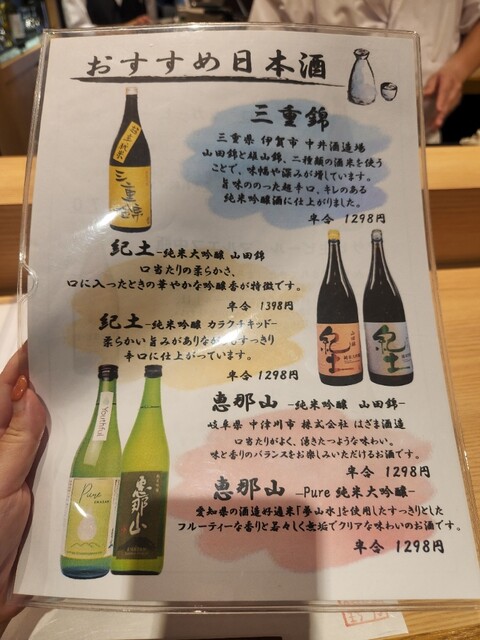 おすすめ日本酒
三重錦
三重県 伊賀市 中井酒造場
山田錦と雄山錦、二種類の酒米を使う
ことで、味幅や深みが増しています。
旨味ののった超辛口、キレのある
純米吟醸酒に仕上がりました。
半合 1298円
三重錦
紀土-純米大吟醸 山田錦
口当たりの柔らかさ、
口に入ったときの華やかな吟醸香が特徴です。
半合 1398円
紀土-純米吟醸 カラクチキッド-
柔らかい旨みがありながらもすっきり
辛口に仕上がっています。
半合 1298円
紀土
紀土
恵那山 -純米吟醸 山田錦-
岐阜県 中津川市 株式会社 はざま酒造
口当たりがよく、湧きたつような味わい。
味と香りのバランスをお楽しみいただけるお酒です。
半合 1298円
恵那山 -Pure 純米大吟醸-
愛知県の酒造好適米「夢山水」を使用したすっきりとした
フルーティーな香りと若々しく無垢でクリアな味わいのお酒です。
半合 1298円
Pure
恵那山